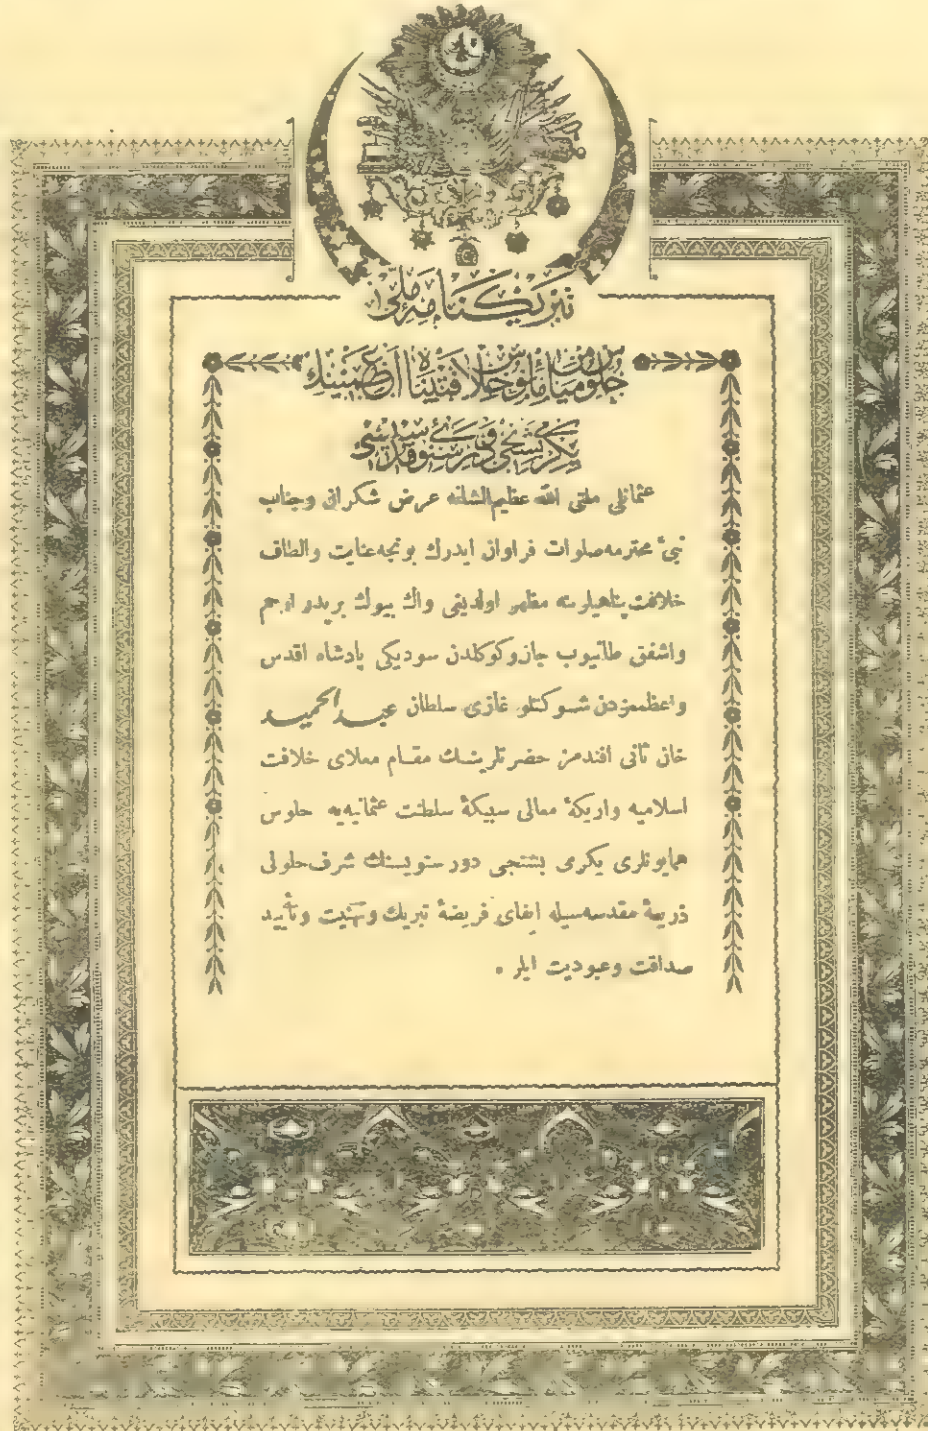 تبريكنامهٔ ملى
جلوس ميامن مأنوس خلافتپناه اعظمينك
يكرمى بشنجى دور سنوى قدسيسى
عثمانلى ملتى الله عظيم الشانه عرض شكران وجناب
نبىٔ محترمه صلوات فراوان ايدرك بونجه عنايت والطاف
خلافت پناهيلرينه مظهر اولدينى واك بيوك بر پدر ارحم
واشفق طانيوب جان وكوكلدن سوديكى پادشاه اقدس
واعظممزدن شوكتلو غازى سلطان عبد الحميد
خان ثانى افندمز حضرتلرينك مقام معلاى خلافت
اسلاميه واريكهٔ معالى سبيكهٔ سلطنت عثمانيه‌يه جلوس
همايونلرى يكرمى بشنجى دور سنويسنك شرف حلولى
ذريعهٔ مقدسه‌سيله ايفاى فريضهٔ تبريك وتهنيت وتأييد
صداقت وعبوديت ايلر .